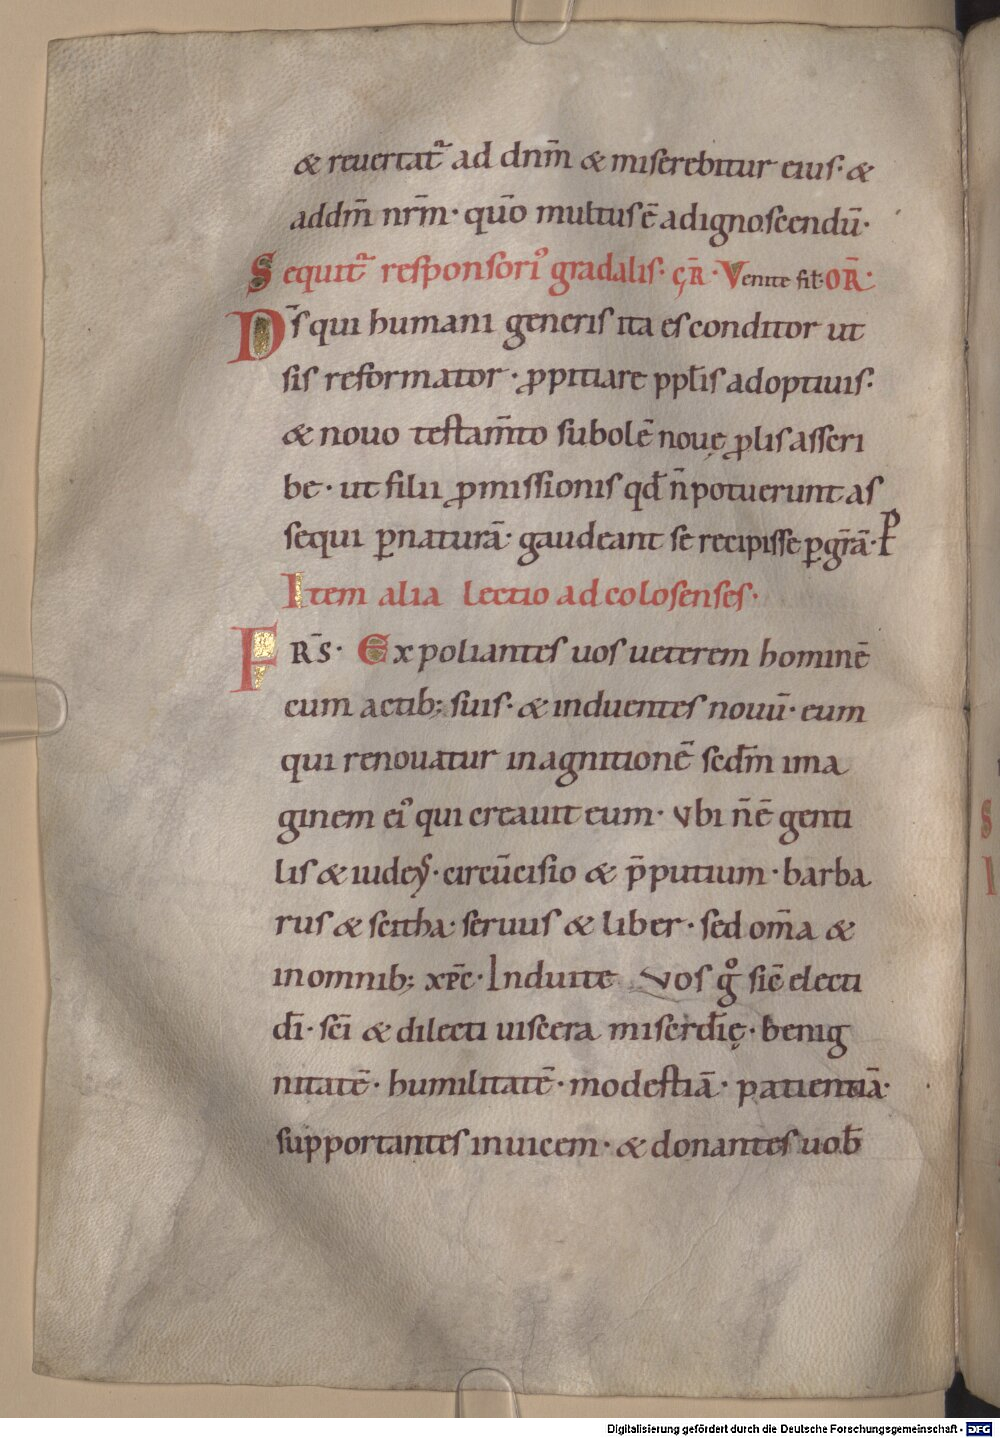 & reuertat᷑ ad dnm̅ & miserebitur eius· &
addm̅ nr̅m· qu̅o multus e̅ adignoscendu̅·
Sequit᷑ responsori᾿ gradalis· ÇR̅· Venite fil̅· OR̅·
D̅s qui humani generis ita es conditor ut
sis reformator· ꝓpitiare ppl̅is adoptiuis·
& nouo testam̅to subole̅ nouę ꝓlis asseri
be· ut filii ꝓmissionis qd̅ n̅ potuerunt as
sequi ꝑ natura̅· gaudeant se recipisse ꝑ gr̅a̅· P̅
Item alia lectio ad colosenses·
FRS̅· Expoliantes uos ueterem homine̅
cum actib; suis· & induentes nouu̅· eum
qui renouatur in agnitione̅ sedm̅ ima
ginem ei᾿ qui creauit eum· Vbi n̅ e̅ genti
lis & iudeỹ· circu̅cisio & p̅putium· barba
rus & scitha· seruus & liber· sed om̅a &
in omnib; xp̅c· Induite Vos g̊ sic̅ electi
di̅· sc̅i & dilecti uiscera miserd̅ię· benig
nitate̅· humilitate̅· modestia̅· patientia̅·
supportantes inuicem· & donantes uob̅
Digitalisierung gefördert durch die Deutsche Forschungsgemeinschaft - DFG